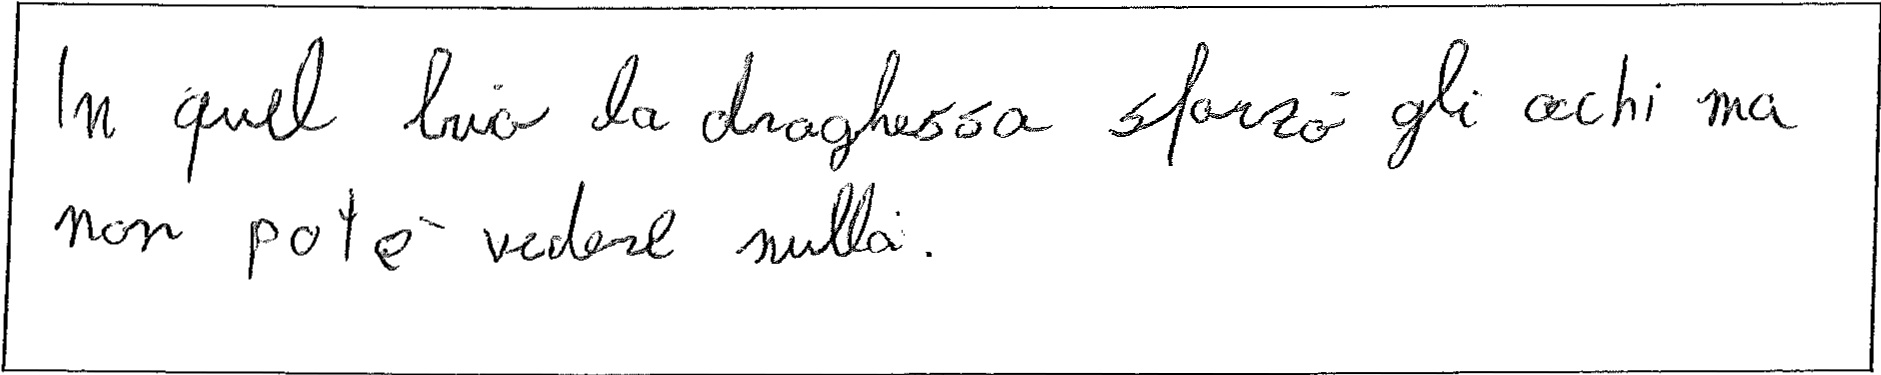 In quel buio la draghessa sforzò gli occhi ma
non potè vedere nulla.